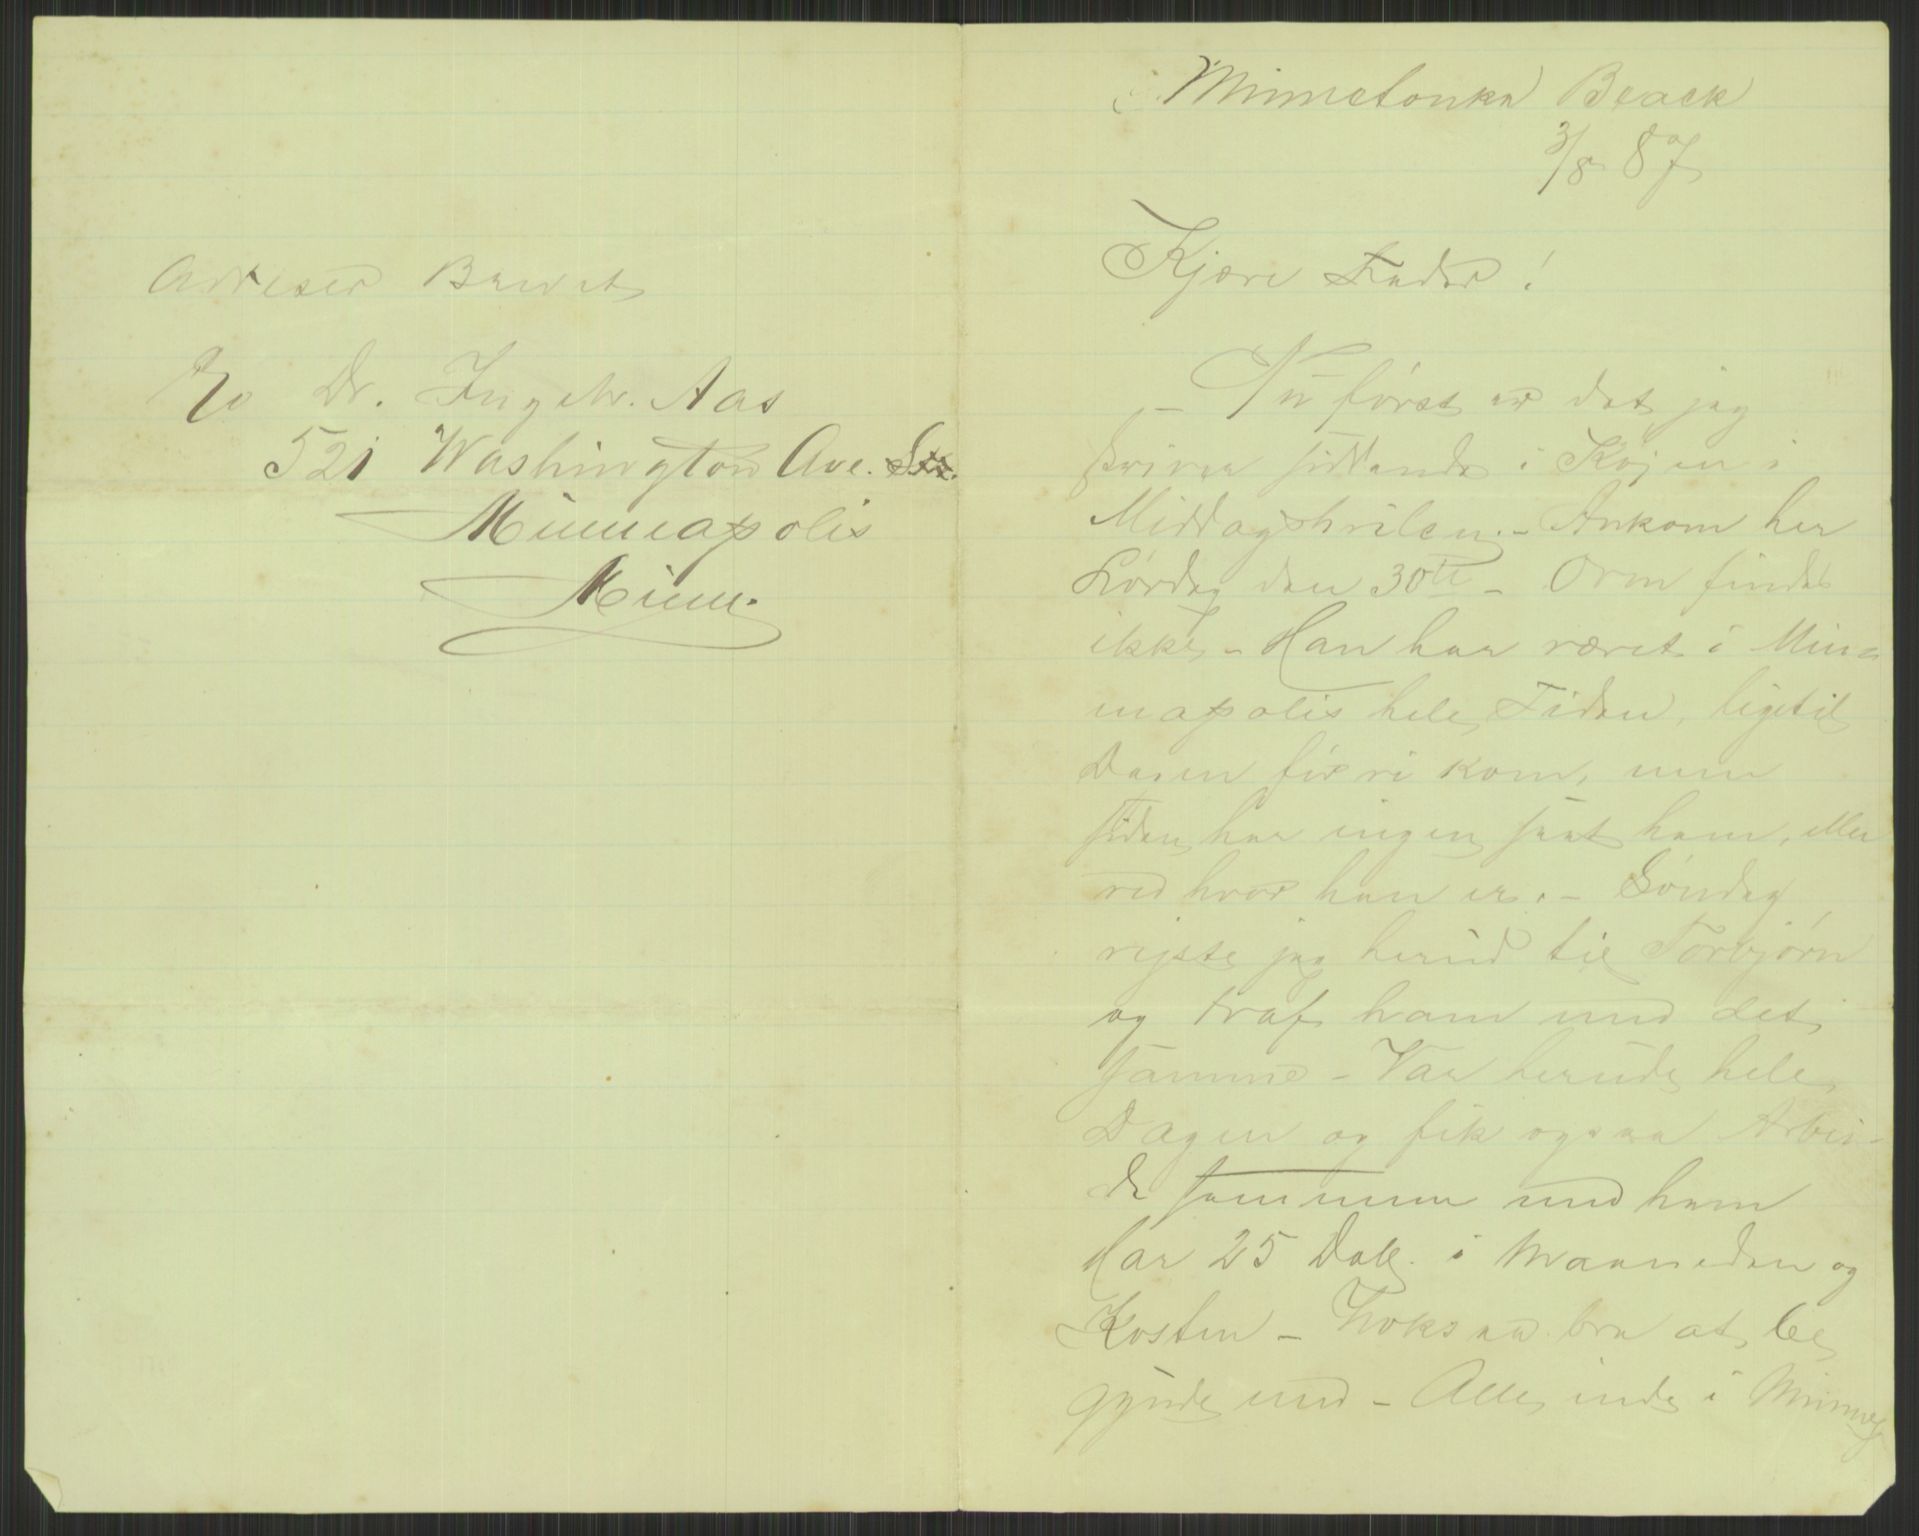 Adresser Brevet
Dr. Ingebr. Aas
521 Washington Ave. Str.
Minneapolis
Minn.
Minnetonka Beack
3/8 87
Kjære Fader!
Nu først er det jeg
skriver siddende i Køjen i
Middagshvilen. - Ankom her
Lørdag den 30te - Orm findes
ikke - Han har været i Min=
neapolis hele Tiden, ligetil
Dagen før vi kom, men
siden har ingen seet ham, eller
ved hvor han er. - Søndag
rejste jeg herud til Torbjørn
og traf ham med det
samme - Var herude hele
Dagen og fik ogsaa Arbei-
de sammen med ham
Har 25 Doll. i Maaneden og
Kosten - Noksaa bra at be
gynde med - Alle inde i Minneap